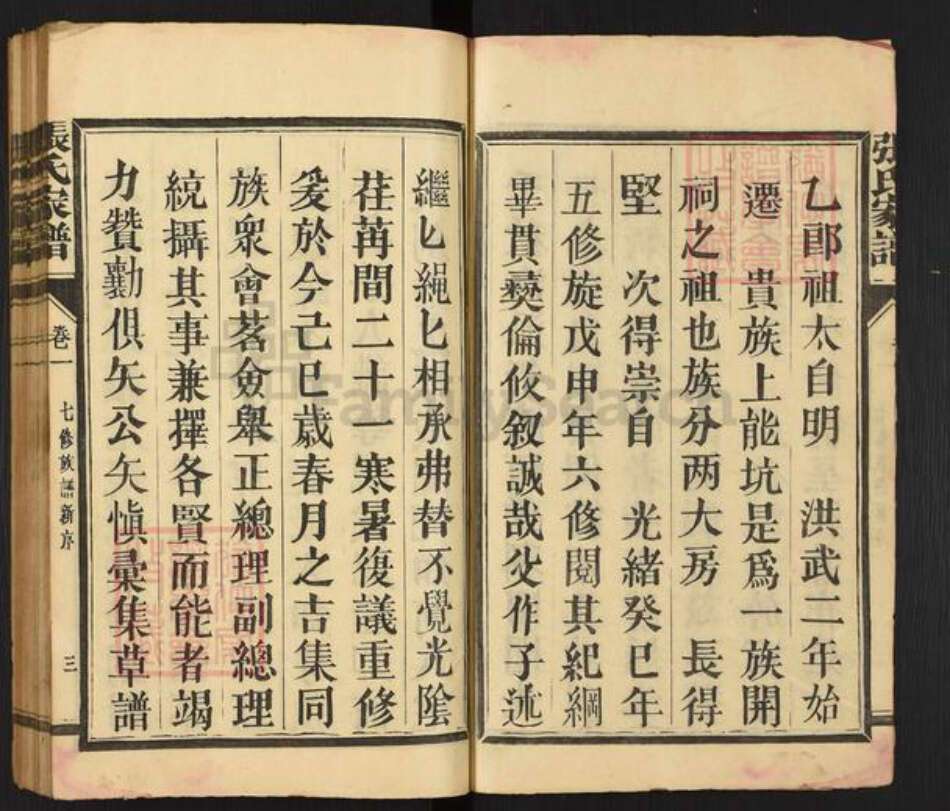 乙郎祖太自明　洪武二年始
遷　貴族上能坑是爲一族開
祠之祖也族分两大房　長得
堅　次得崇自　光緒癸巳年
五修旋戊申年六修閱其紀綱
畢貫彜倫攸叙誠哉父作子述
繼匕繩匕相承弗替不覺光陰
荏苒間二十一寒暑復議重修
爰於今己巳歲春月之吉集同
族衆會茗僉舉正總理副總理
統攝其事兼擇各賢而能者竭
力贊勷俱矢公矢愼彙集草譜
張氏家譜
卷一
七修族譜新序
三
張氏家譜
FamilySearch